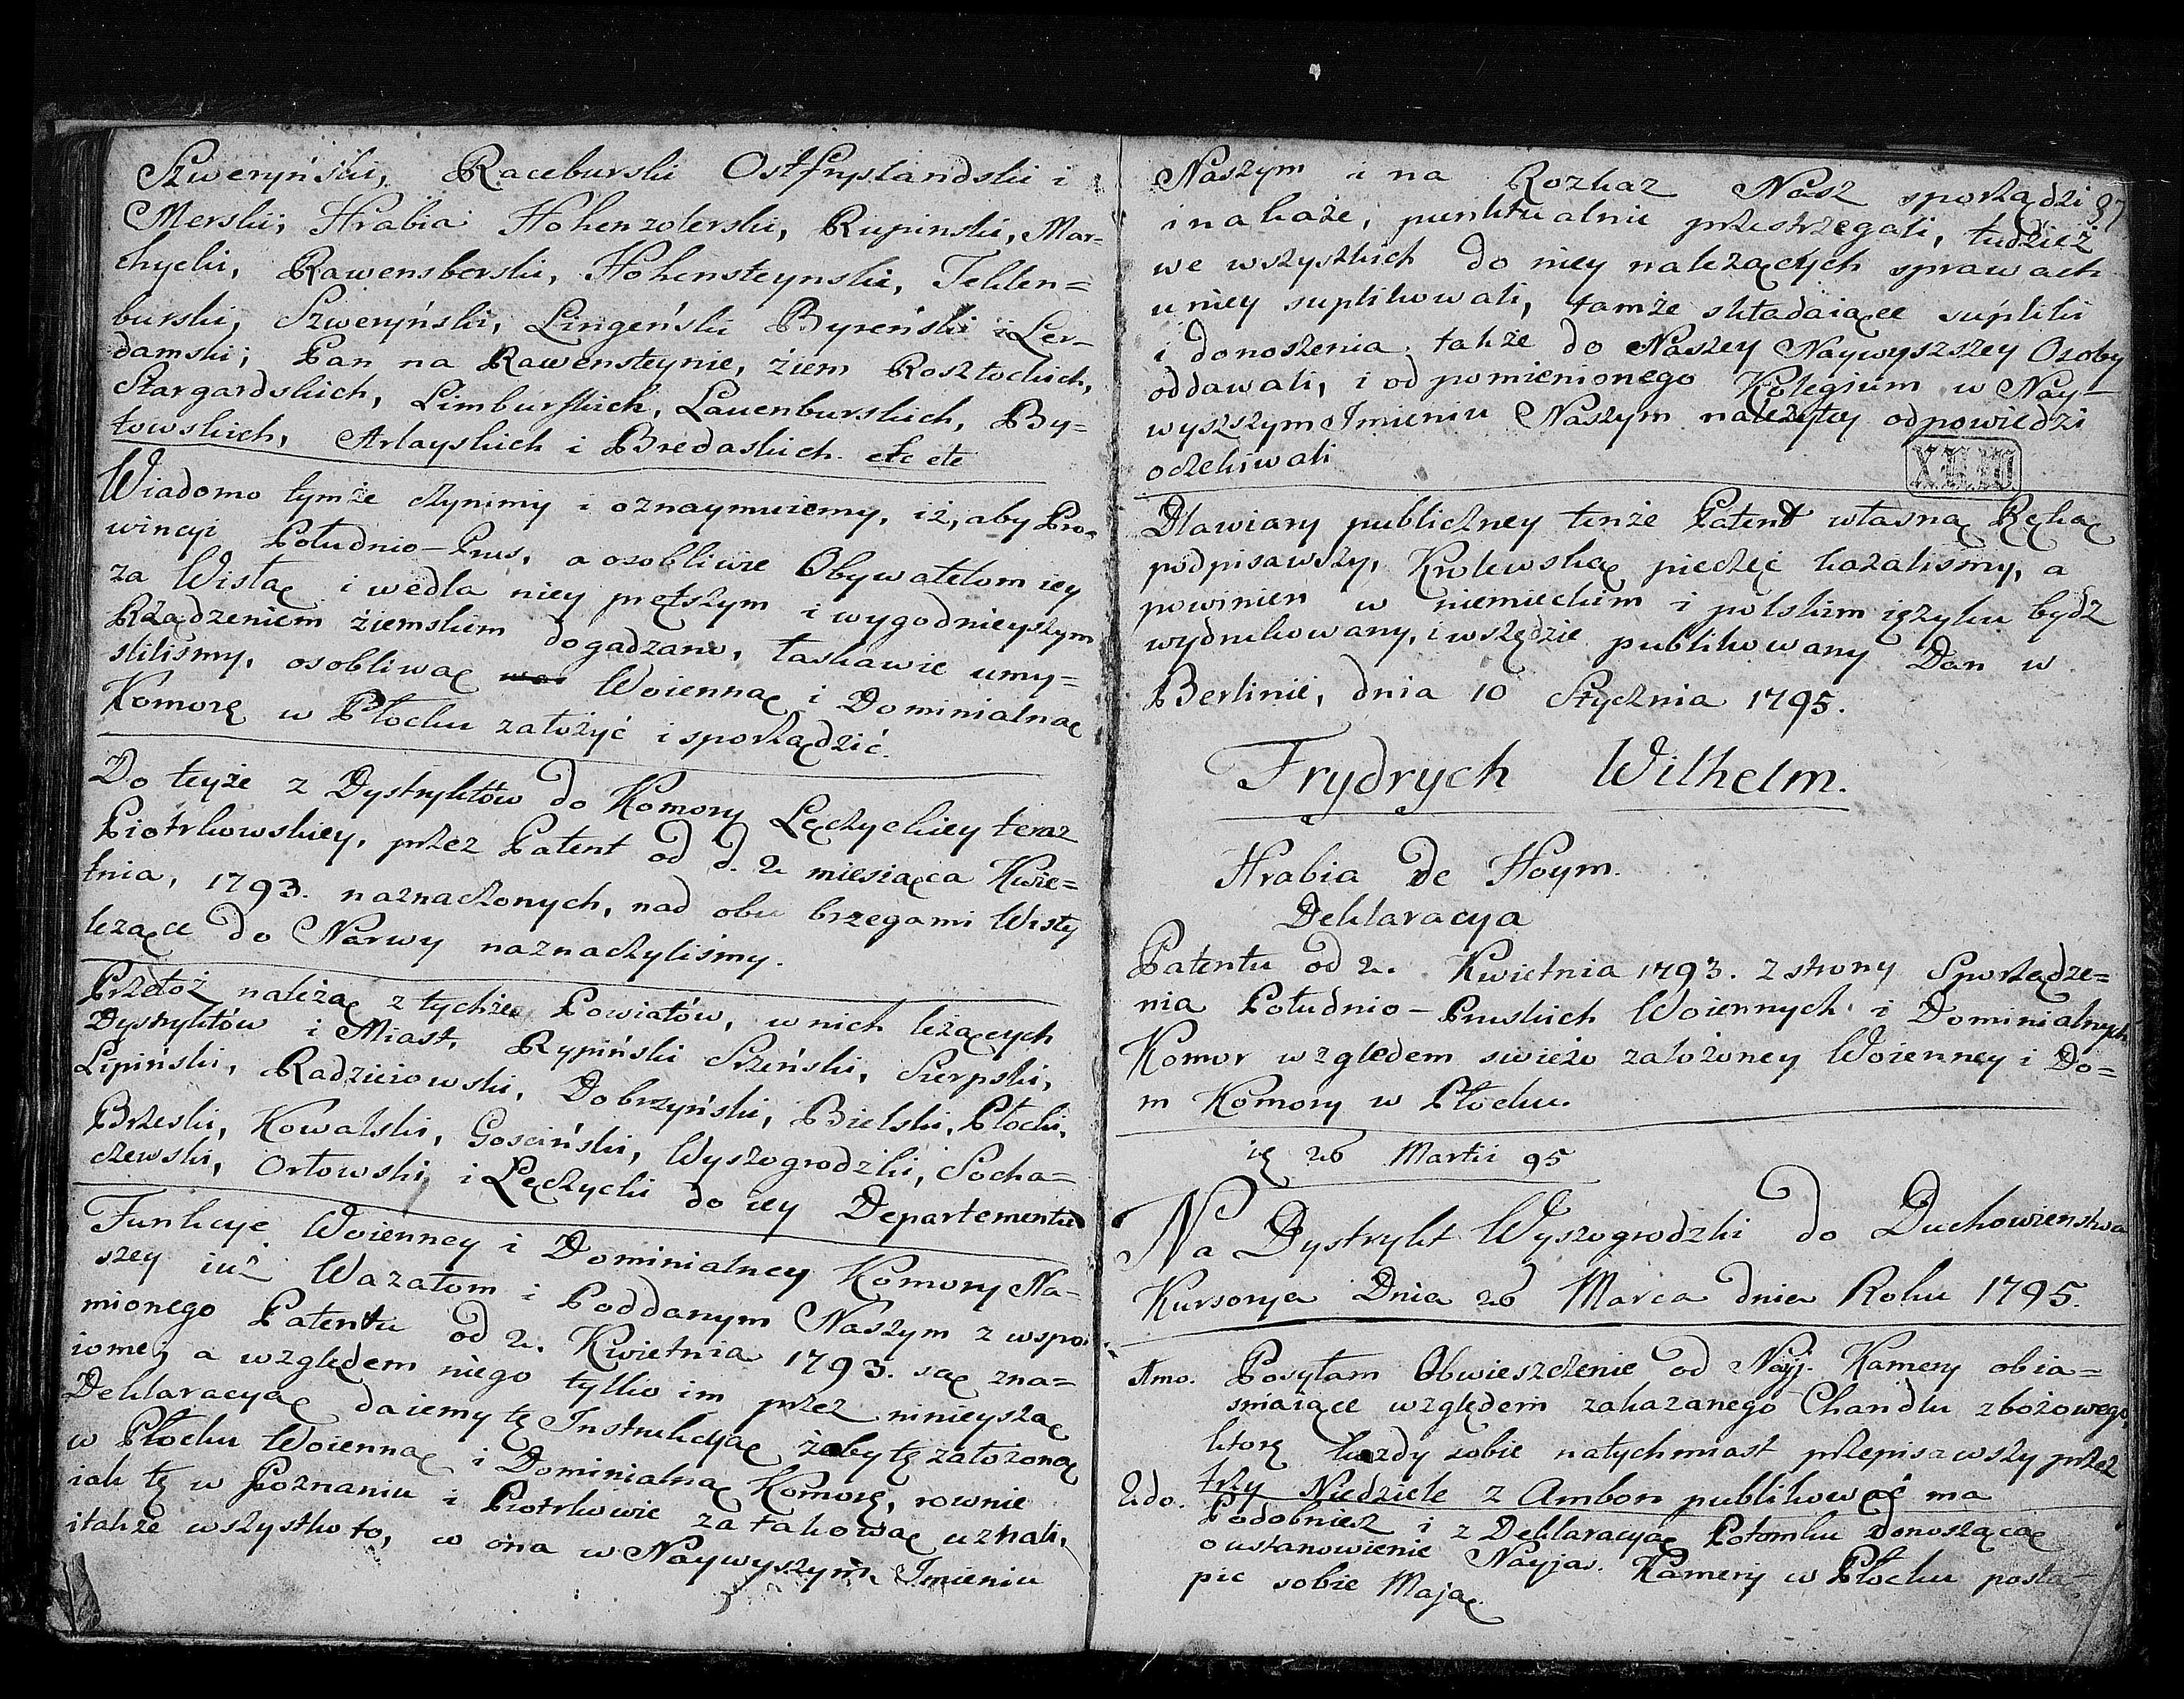 Szweryński, Raceburski Ostfryslandski i
Merski; Hrabia Hohenzolerski, Rupinski, Mar=
chycki, Rawensberski, Hohensteynski, Teklen=
burski, Szweryński, Lingeński Byreński i Ler=
damski; Pan na Rawensteynie, ziem Rosztockich,
Stargardskich, Limburskich, Lauenburskich, By=
towskich, Arlayskich i Bredaskich. etc etc
Wiadomo tymże czynimy i oznaymuiemy, iż, aby Pro=
wincyi Południo-Prus, a osobliwie Obywatelom iey
za Wisłą i wedla niey prętszym i wygodnieyszym
Rządzeniem ziemskim dogadzano, łaskawie umy=
sliliśmy, osobliwą Woienną i Dominialną
Komorę w Płocku założyć i sporządzić.
Do teyże z Dystryktów do Komory Łęczyckiey teraz
Piotrkowskiey, przez Patent od d. 2 miesiąca Kwie=
tnia, 1793. naznaczonych, nad obu brzegami Wisły
leżące do Narwy naznaczyliśmy.
Przetoż należą z tychże Powiatów, w nich leżących
Dystryktów i Miast, Rypiński Srzeński, Sierpski,
Lipiński, Radzieiowski, Dobrzyński, Bielski, Płocki,
Brzeski, Kowalski, Gosciński, Wyszogrodzki, Socha=
czewski, Orłowski, i Łęczycki do iey Departementu
Funkcyę Woienney i Dominialney Komory Na=
szey iuż Wazalom i Poddanym Naszym z wspo=
mionego Patentu od 2. Kwietnia 1793. są zna=
iome; a względem niego tylko im przez ninieyszą
Deklaracyą daiemy tę Instrukcyą żeby tę założoną
w Płocku Woienną i Dominialną Komorę, rownie
iak tę w Poznaniu i Piotrkowie za takową uznali,
i także wszystko to, co ona w Naywyższym Imieniu
Naszym i na Rozkaz Nasz sporządzi 37
i nakaże, punktualnie przestrzegali, tudzież
we wszyszkich do niey należących sprawach
u niey suplikowali, tamże składaiące supliki
i donoszenia także do Naszey Naywyższey Osoby
oddawali, i od pomienionego Kolegium w Nay-
wyszszym Imieniu Naszym należytey odpowiedzi
oczekiwali
Dla wiary publiczney tenże Patent własną Ręką
podpisawszy, Krolewską pieczęć kazalismy, a
powinien w niemieckim i polskim ięzyku bydz
wydrukowany, i wszędzie publikowany Dan w
Berlinie, dnia 10 Stycznia 1795.
Frydrych Wilhelm.
Hrabia de Hoym.
Deklaracya
Patentu od 2. Kwietnia 1793. z strony Sporządze=
nia Południo-Pruskich Woiennych i Dominialnych
Komor względem swieżo założoney Woienney i Do=
m Komory w Płocku.
26 Martii 95
Na Dystrykt Wyszogrodzki do Duchowienstwa
Kursorya Dnia 26 Marca dnia Roku 1795.
1mo. Posyłam Obwieszczenie od Nayj. Kamery obia=
sniaiące względem zakazanego Chandlu zbożowego,
ktorę każdy sobie natychmiast przepisawszy przez
trzy Niedziele z Ambon publikować ma
2do. Podobniesz i z Deklaracyą Potomku donoszącą
o ustanowienie Nayjas. Kamery w Płocku postą=
pic sobie Mają.